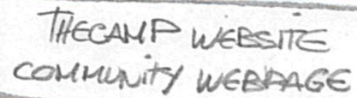 THECAMP WEBSITE
COMMUNITY WEBPAGE